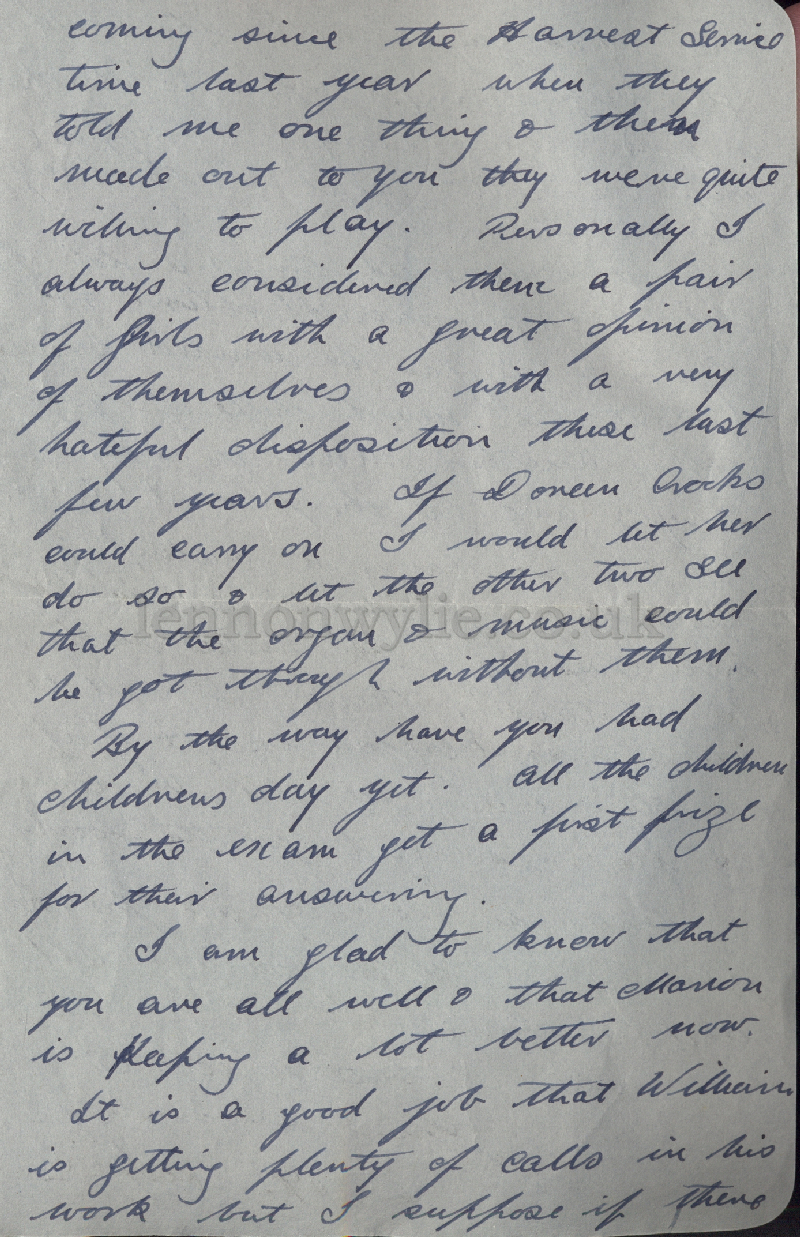 coming since the Harvest Service
time last year when they
told me one thing & them
made out to you they were quite
willing to play. Personally I
always considered them a pair
of girls with a great opinion
of themselves & with a very
hateful disposition these last
few years. If Doreen Crooks
could carry on I would let her
do so & let the other two see
lennonwylie.co.uk
that the organ & music could
be got through without them.
By the way have you had
childrens day yet. All the children
in the exam get a first prize
for their answering.
I am glad to know that
you are all well & that Marion
is keeping a lot better now.
It is a good job that William
is getting plenty of calls in his
work but I suppose if there